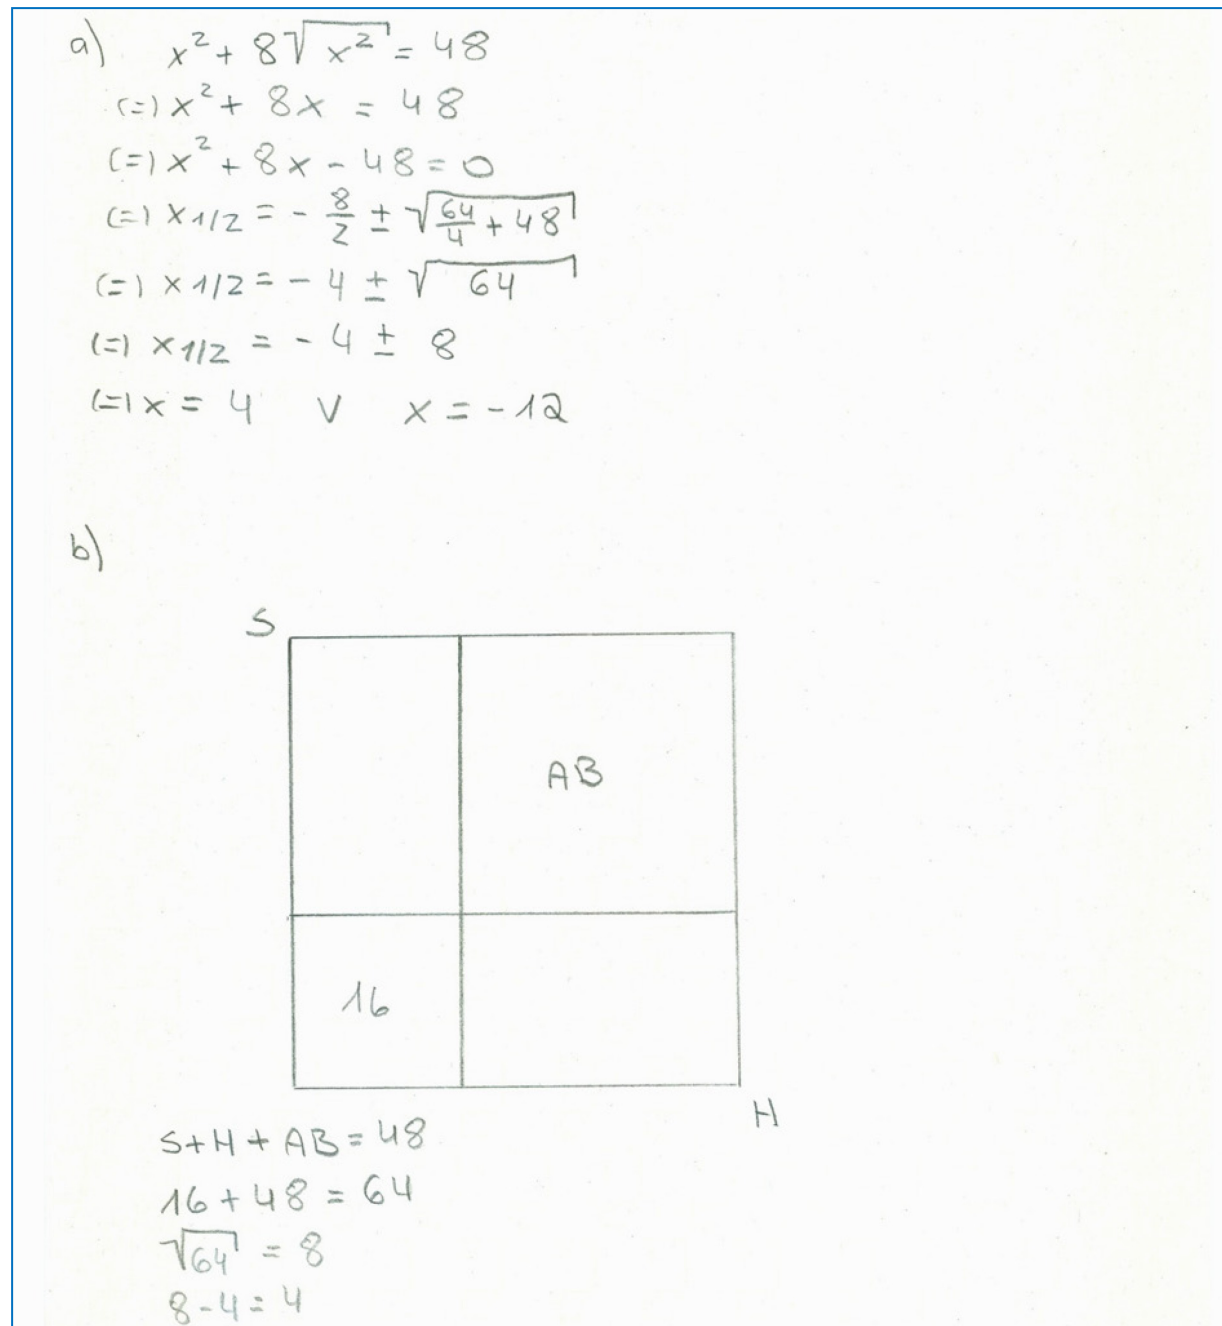 a) x² + 8√x² = 48
(=) x² + 8x = 48
(=) x² + 8x - 48 = 0
(=) x 1/2 = - 8/2 ± √(64/4 + 48)
(=) x 1/2 = - 4 ± √64
(=) x 1/2 = - 4 ± 8
(=) x = 4 ∨ x = -12
b)
S
AB
16
H
S + H + AB = 48
16 + 48 = 64
√64 = 8
8 - 4 = 4